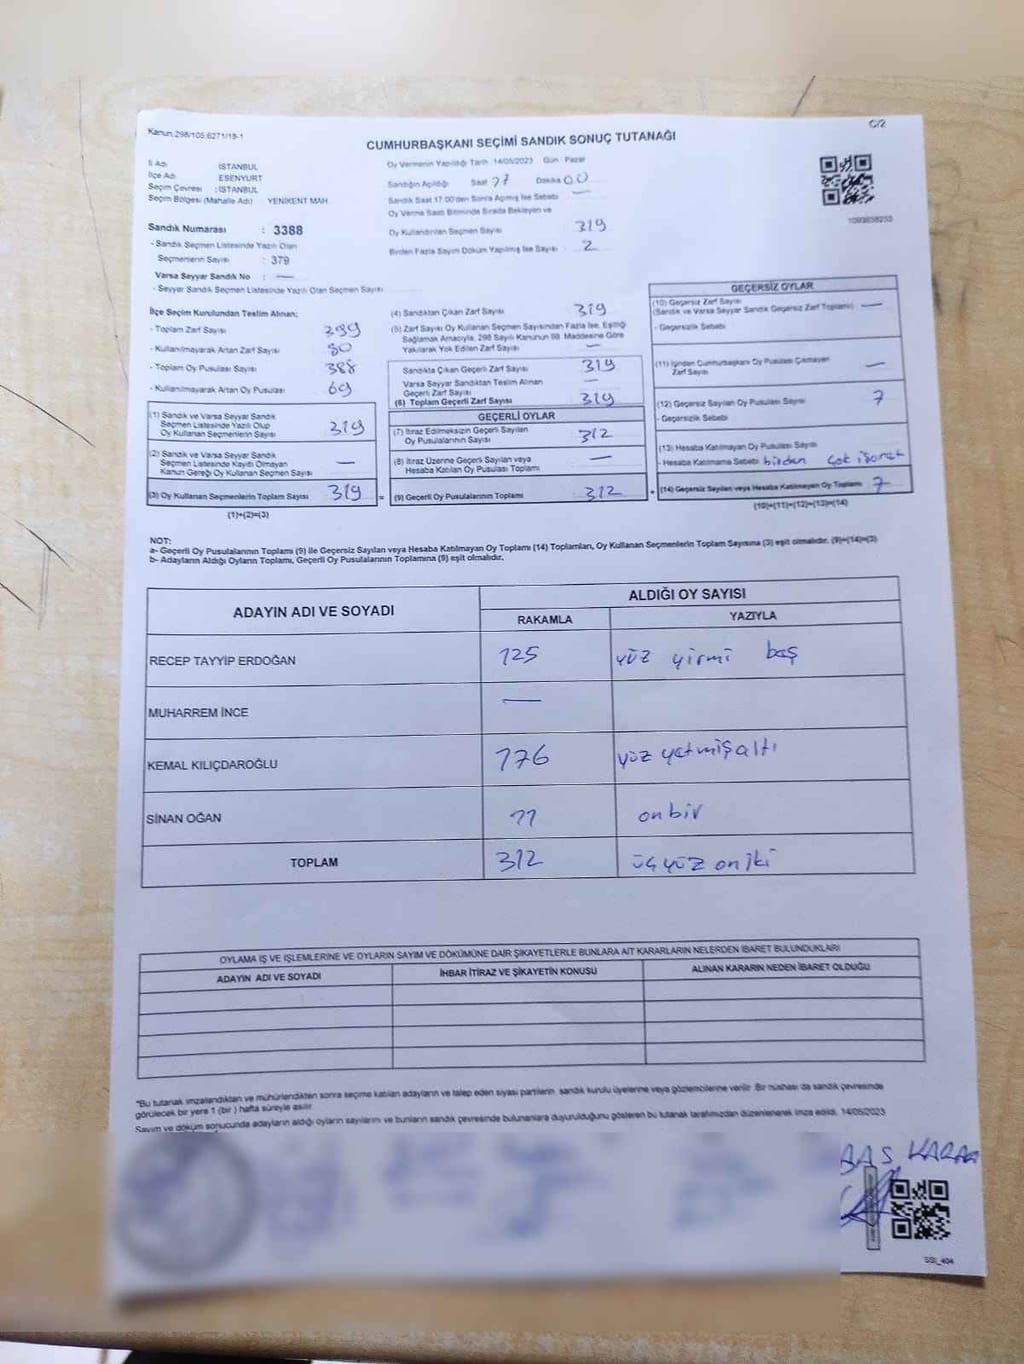 Kanun:298/105;6271/18-1
C/2
CUMHURBAŞKANI SEÇİMİ SANDIK SONUÇ TUTANAĞI
İl Adı : İSTANBUL
İlçe Adı : ESENYURT
Seçim Çevresi : İSTANBUL
Seçim Bölgesi (Mahalle Adı) YENİKENT MAH.
Sandık Numarası : 3388
- Sandık Seçmen Listesinde Yazılı Olan
Seçmenlerin Sayısı : 379
Varsa Seyyar Sandık No : —
- Seyyar Sandık Seçmen Listesinde Yazılı Olan Seçmen Sayısı
Oy Vermenin Yapıldığı Tarih 14/05/2023 Gün Pazar
Sandığın Açıldığı Saat 17 Dakika 00
Sandık Saat 17.00'den Sonra Açılmış İse Sebebi —
Oy Verme Saati Bitiminde Sırada Bekleyen ve
Oy Kullandırılan Seçmen Sayısı 319
Birden Fazla Sayım Döküm Yapılmış İse Sayısı 2
İlçe Seçim Kurulundan Teslim Alınan;
- Toplam Zarf Sayısı
- Kullanılmayarak Artan Zarf Sayısı 80
- Toplam Oy Pusulası Sayısı 388
- Kullanılmayarak Artan Oy Pusulası 69
(1) Sandık ve Varsa Seyyar Sandık
Seçmen Listesinde Yazılı Olup
Oy Kullanan Seçmenlerin Sayısı 319
(2) Sandık ve Varsa Seyyar Sandık
Seçmen Listesinde Kaydı Olmayan
Kanun Gereği Oy Kullanan Seçmen Sayısı —
(3) Oy Kullanan Seçmenlerin Toplam Sayısı 319 =
(1)+(2)=(3)
(4) Sandıktan Çıkan Zarf Sayısı 319
(5) Zarf Sayısı Oy Kullanan Seçmen Sayısından Fazla İse, Eşitliği
Sağlamak Amacıyla, 298 Sayılı Kanunun 98. Maddesine Göre
Yakılarak Yok Edilen Zarf Sayısı —
Sandıkta Çıkan Geçerli Zarf Sayısı 319
Varsa Seyyar Sandıktan Teslim Alınan
Geçerli Zarf Sayısı —
(6) Toplam Geçerli Zarf Sayısı 319
GEÇERLİ OYLAR
(7) İtiraz Edilmeksizin Geçerli Sayılan
Oy Pusulalarının Sayısı 312
(8) İtiraz Üzerine Geçerli Sayılan veya
Hesaba Katılan Oy Pusulası Toplamı —
(9) Geçerli Oy Pusulalarının Toplamı 312 +
GEÇERSİZ OYLAR
(10) Geçersiz Zarf Sayısı
(Sandık ve Varsa Seyyar Sandık Geçersiz Zarf Toplamı) —
- Geçersizlik Sebebi
(11) İçinden Cumhurbaşkanı Oy Pusulası Çıkmayan
Zarf Sayısı —
(12) Geçersiz Sayılan Oy Pusulası Sayısı 7
- Geçersizlik Sebebi
(13) Hesaba Katılmayan Oy Pusulası Sayısı
- Hesaba Katılmama Sebebi birden çok işaret
(14) Geçersiz Sayılan veya Hesaba Katılmayan Oy Toplamı 7
(10)+(11)+(12)+(13)=(14)
NOT:
a- Geçerli Oy Pusulalarının Toplamı (9) ile Geçersiz Sayılan veya Hesaba Katılmayan Oy Toplamı (14) Toplamları, Oy Kullanan Seçmenlerin Toplam Sayısına (3) eşit olmalıdır. (9)+(14)=(3)
b- Adayların Aldığı Oyların Toplamı, Geçerli Oy Pusulalarının Toplamına (9) eşit olmalıdır.
ADAYIN ADI VE SOYADI ALDIĞI OY SAYISI
RAKAMLA YAZIYLA
RECEP TAYYİP ERDOĞAN 125 yüz yirmi baş
MUHARREM İNCE —
KEMAL KILIÇDAROĞLU 176 yüz yetmiş altı
SİNAN OĞAN 11 onbir
TOPLAM 312 üç yüz on iki
OYLAMA İŞ VE İŞLEMLERİNE VE OYLARIN SAYIM VE DÖKÜMÜNE DAİR ŞİKAYETLERLE BUNLARA AİT KARARLARIN NELERDEN İBARET BULUNDUKLARI
ADAYIN ADI VE SOYADI İHBAR İTİRAZ VE ŞİKAYETİN KONUSU ALINAN KARARIN NEDEN İBARET OLDUĞU
"Bu tutanak imzalandıktan ve mühürlendikten sonra seçime katılan adayların ve talep eden siyasi partilerin sandık kurulu üyelerine veya gözlemcilerine verilir. Bir nüshası da sandık çevresinde
görülecek bir yere 1 (bir) hafta süreyle asılır.
Sayım ve döküm sonucunda adayların aldığı oyların sayılarını ve bunların sandık çevresinde bulunanlara duyurulduğunu gösteren bu tutanak tarafımızdan düzenlenerek imza edildi. 14/05/2023
SSI_404